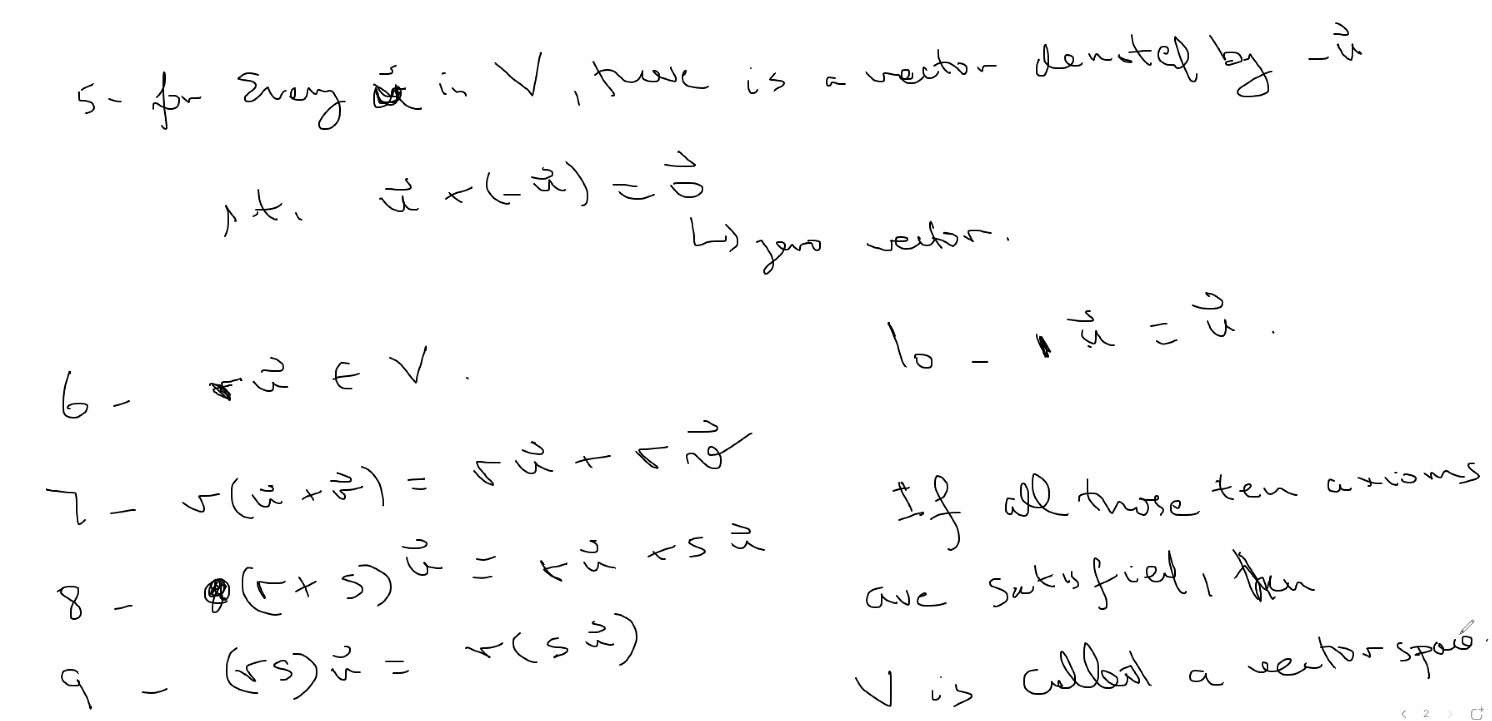 5- for Every u⃗ in V, there is a vector denoted by -u⃗
s.t. u⃗ + (-u⃗) = 0⃗
↳ zero vector.
6 - ru⃗ ∈ V.
7 - r(u⃗ + v⃗) = ru⃗ + rv⃗
8 - (r + s)u⃗ = ru⃗ + su⃗
9 - (rs)u⃗ = r(su⃗)
10 - 1u⃗ = u⃗.
If all those ten axioms
are satisfied, then
V is called a vector space.
2